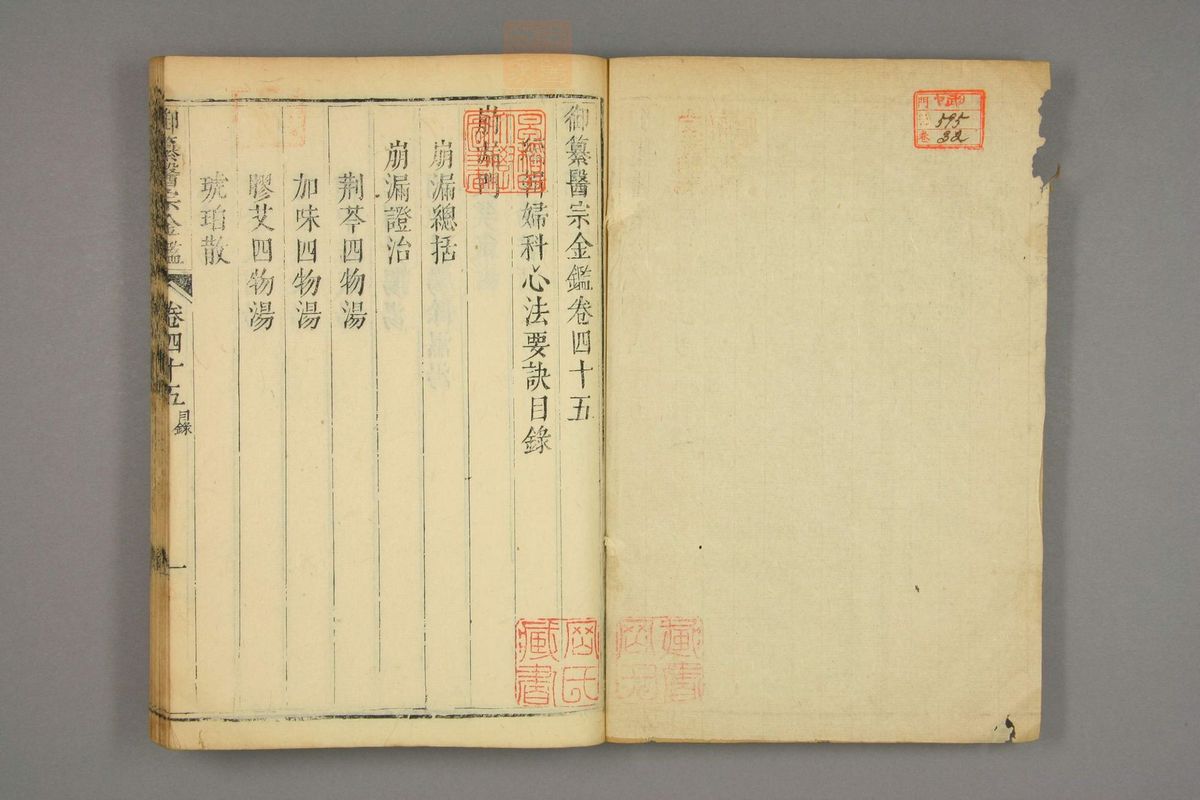 御纂醫宗金鑑卷四十五
編輯婦科心法要訣目錄
崩漏門
崩漏總括
崩漏證治
荆芩四物湯
加味四物湯
膠艾四物湯
琥珀散
御纂醫宗金鑑 卷四十五 目錄 一
藏書
門
卷
595
32